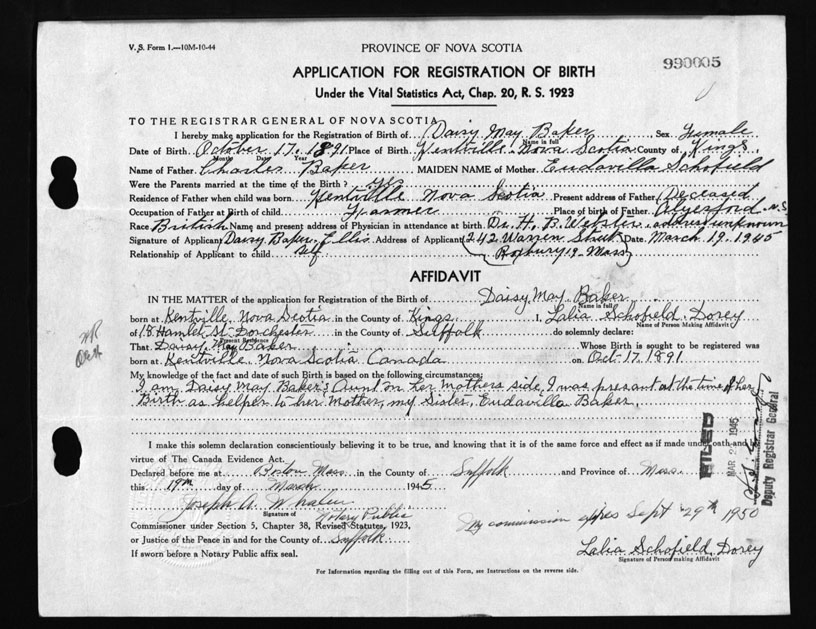 V. S. Form 1.—10M-10-44
PROVINCE OF NOVA SCOTIA
990005
APPLICATION FOR REGISTRATION OF BIRTH
Under the Vital Statistics Act, Chap. 20, R. S. 1923
TO THE REGISTRAR GENERAL OF NOVA SCOTIA
I hereby make application for the Registration of Birth of Daisy May Baker Sex Female
Name in full
Date of Birth October 17, 1891 Place of Birth Kentville Nova Scotia County of Kings
Month Day Year
Name of Father Charles Baker MAIDEN NAME of Mother Eudavilla Schofield
Were the Parents married at the time of the Birth? yes
Residence of Father when child was born Kentville Nova Scotia Present address of Father Deceased
Occupation of Father at Birth of child Farmer Place of birth of Father Aylesford N.S
Race British Name and present address of Physician in attendance at birth Dr. H. B. Webster address unknown
Signature of Applicant Daisy Baker Ellis Address of Applicant (242 Warren Street Date March 19, 1945
Relationship of Applicant to child self Roxbury 19 Mass)
AFFIDAVIT
IN THE MATTER of the application for Registration of the Birth of Daisy May Baker
Name in full
born at Kentville, Nova Scotia in the County of Kings I, Lalia Schofield Dorey
Name of Person Making Affidavit
of 18 Hamlet St. Dorchester in the County of Suffolk do solemnly declare:
Present Residence
That Daisy May Baker Whose Birth is sought to be registered was
born at Kentville Nova Scotia Canada on Oct-17-1891
My knowledge of the fact and date of such Birth is based on the following circumstances:
I am Daisy May Baker's Aunt on her mothers side, I was presant at the time of her
Birth as helper to her Mother, my Sister, Eudavilla Baker.
I make this solemn declaration conscientiously believing it to be true, and knowing that it is of the same force and effect as if made under oath and by
virtue of The Canada Evidence Act.
Declared before me at Boston Mass in the County of Suffolk and Province of Mass.
this 19th day of March 1945
Joseph A. Whalen
Signature of Notary Public
Commissioner under Section 5, Chapter 38, Revised Statutes, 1923,
My commission expires Sept 29th 1950
or Justice of the Peace in and for the County of Suffolk
Lalia Schofield Dorey
If sworn before a Notary Public affix seal.
Signature of Person making Affidavit
For Information regarding the filling out of this Form, see Instructions on the reverse side.
FILED
1945
Deputy Registrar General